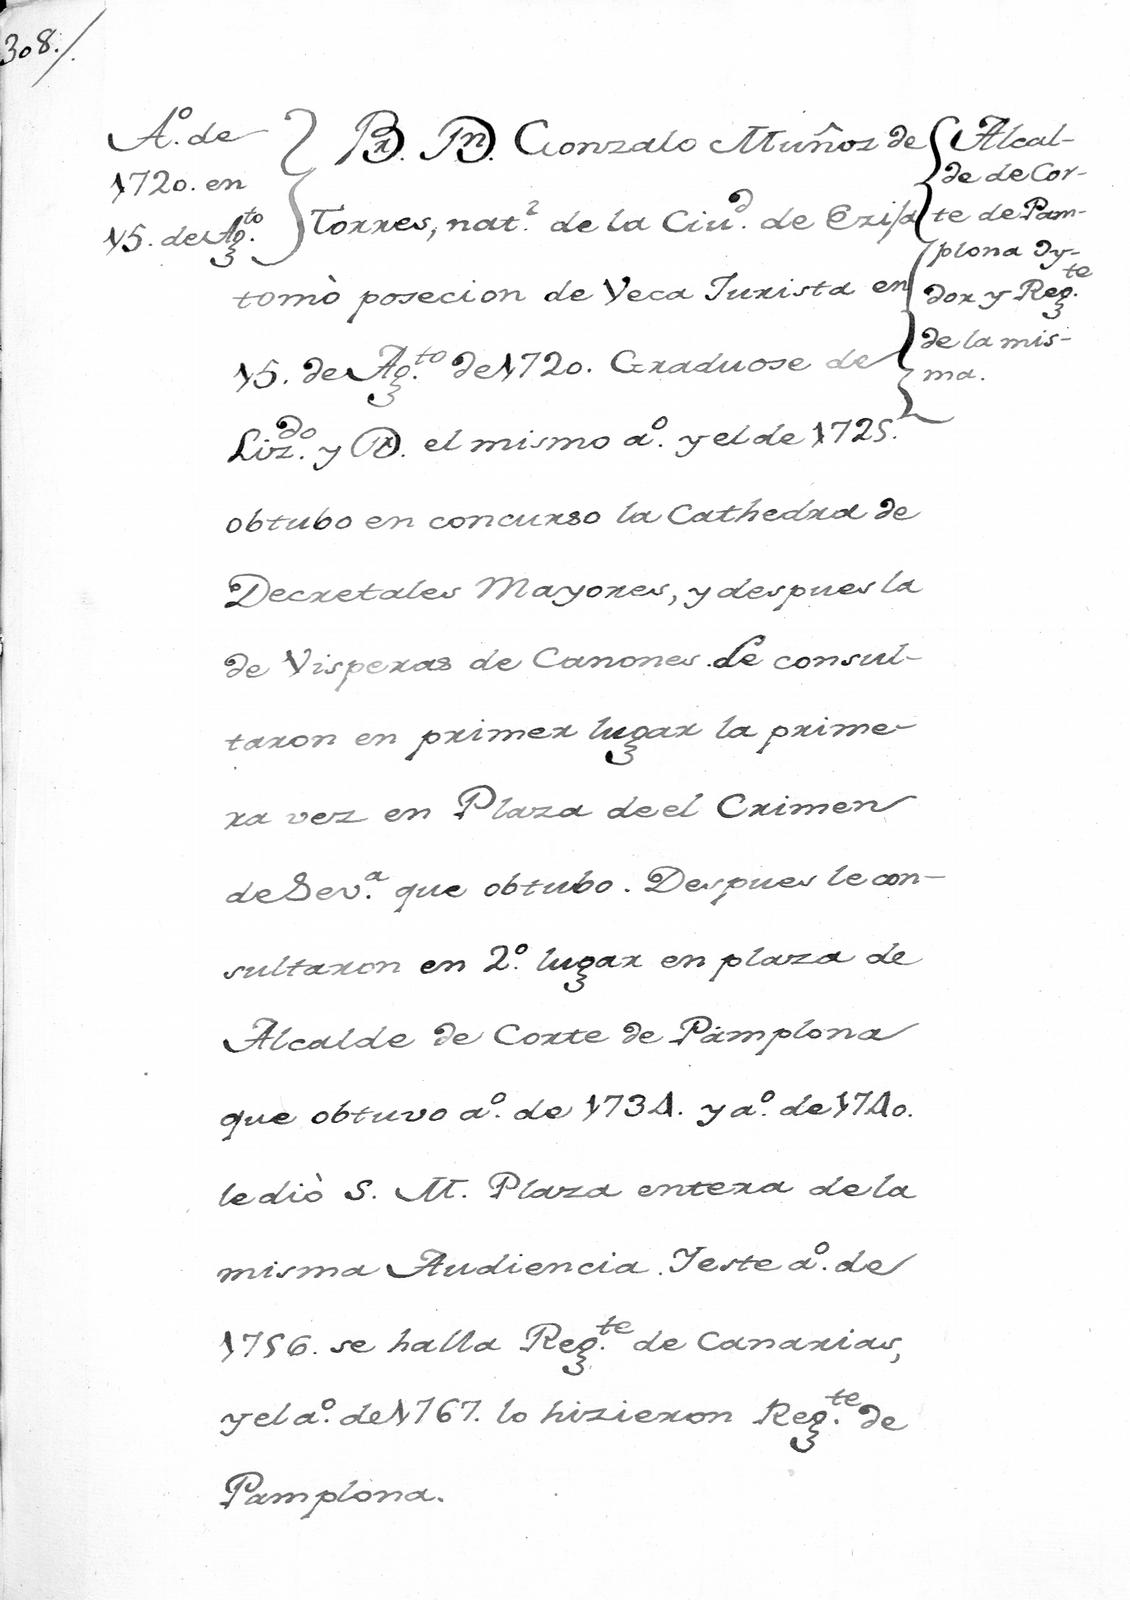 308./.
Aº. de
1720. en
15. de Ag.to
Br. Dn. Gonzalo Muñoz de
Torres, nat.l de la Ciu.d de Ezija
tomò posecion de Veca Jurista en
15. de Ag.to de 1720. Graduose de
Liz.do y Dr. el mismo aº. y el de 1725.
obtubo en concurso la Cathedra de
Decretales Mayores, y despues la
de Visperas de Canones. Le consul-
taron en primer lugar la prime-
ra vez en Plaza de el Crimen
de Sev.a que obtubo. Despues le con-
sultaron en 2º. lugar en plaza de
Alcalde de Corte de Pamplona
que obtuvo aº. de 1734. y aº. de 1740.
le diò S. M. Plaza entera de la
misma Audiencia. Y este aº. de
1756. se halla Reg.te de Canarias,
y el aº. de 1767. lo hizieron Reg.te de
Pamplona.
Alcal-
de de Cor-
te de Pam-
plona Oy-
dor y Reg.te
de la mis-
ma.